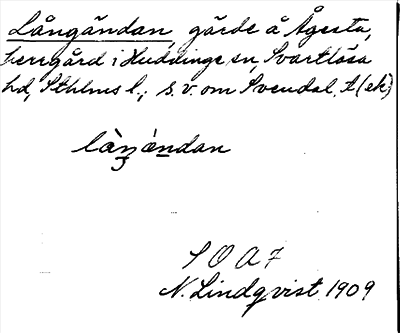 Långändan, gärde å Ågesta,
herrgård i Huddinge sn, Svartlösa
hd, Sthlms l.; s.v. om Svendal. A (ek)
làŋǽndan
SOA7
N. Lindqvist 1909